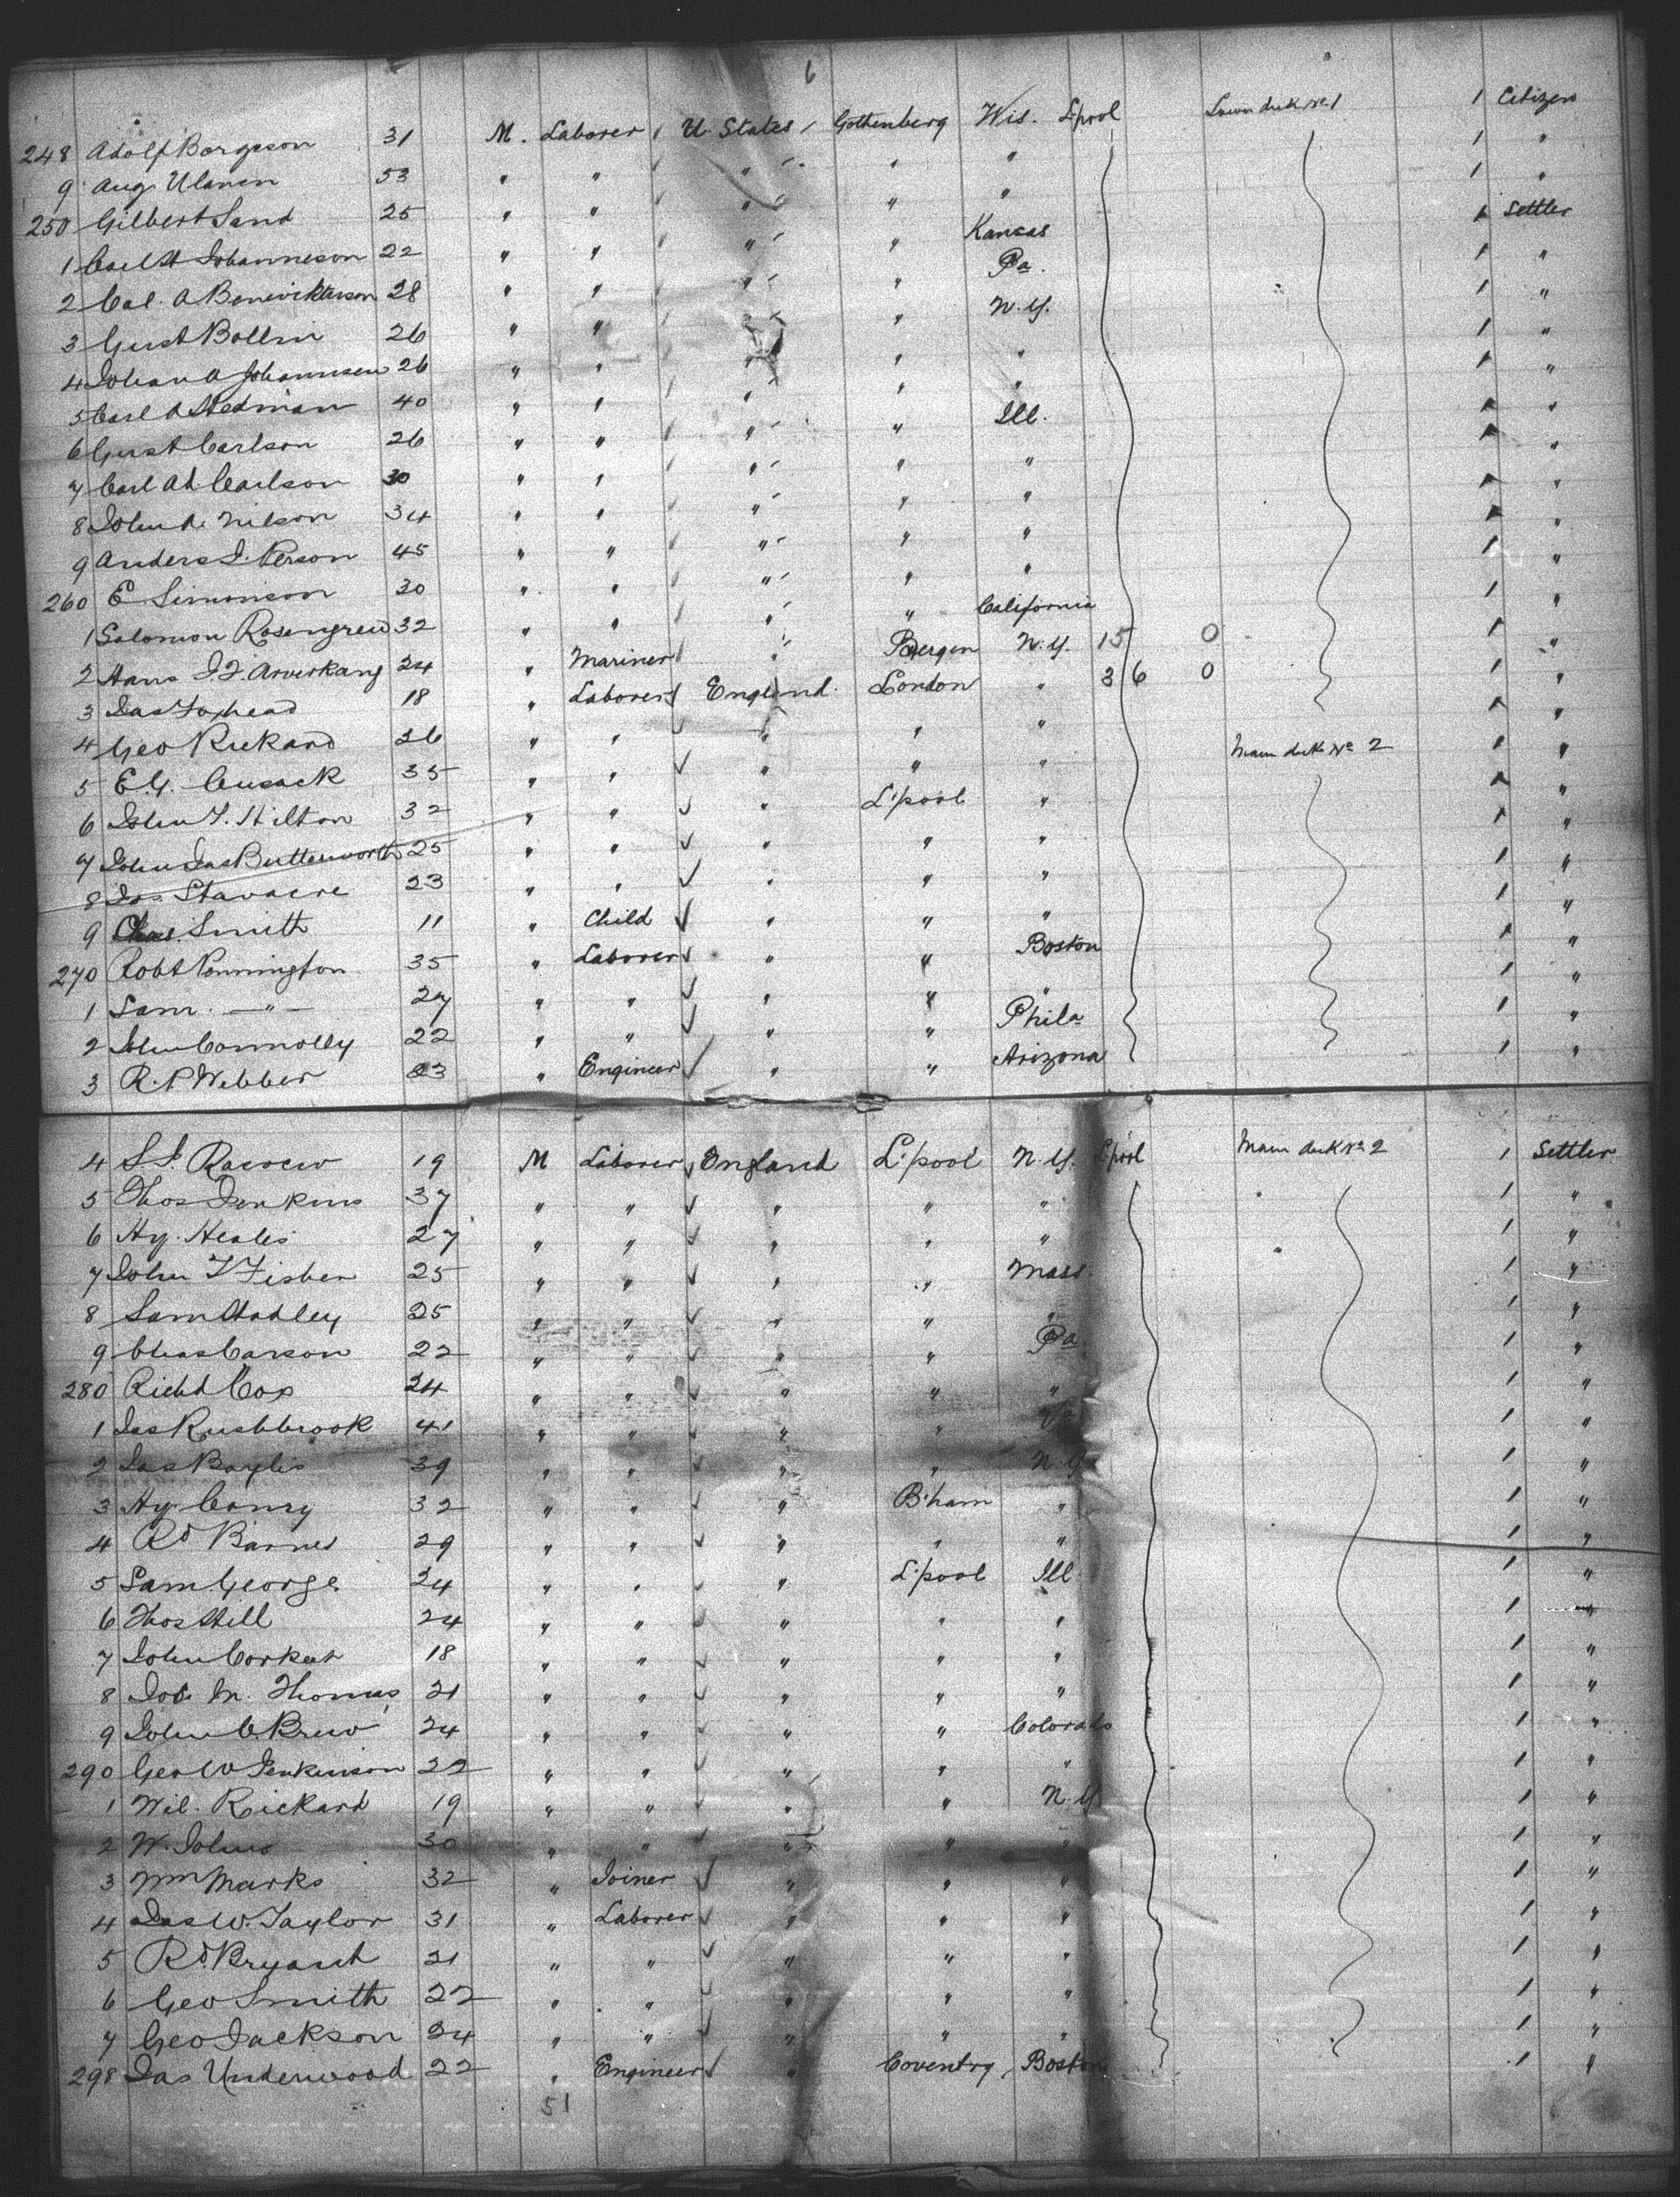 6
248 Adolf Borgeson 31 M. Laborer U. States Gothenberg Wis. L'pool Lower deck No 1 1 Citizen
9 Aug. Ulanen 53 " " " " " 1 "
250 Gilbert Sand 25 " " " " " 1 "
1 Carl A Johanneson 22 " " " " Kansas 1 Settler
2 Cal. A Benewicktsson 28 " " " " Pa. 1 "
3 Gust Bollin 26 " " " " N.Y. 1 "
4 Johan A Johannsen 26 " " " " " 1 "
5 Carl A Stedman 40 " " " " " 1 "
6 Gust Carlson 26 " " " " Ill. 1 "
7 Carl Ad. Carlson 30 " " " " " 1 "
8 John A. Nilson 34 " " " " " 1 "
9 Anders J. Person 45 " " " " " 1 "
260 E Simonson 30 " " " " " 1 "
1 Salomon Rosengren 32 " " " " California 1 "
2 Hans J. F. Arverkang 24 " Mariner " Bergen N.Y. 15 0 1 "
3 Jas Foxhead 18 " Laborer England London " 3 6 0 1 "
4 Geo Rickard 26 " " " " " 1 "
5 E.G. Cusack 35 " " " " " Main deck No 2 1 "
6 John T. Hilton 32 " " " L'pool " 1 "
7 John Jas Butterworth 25 " " " " " 1 "
8 Jos. Stavacre 23 " " " " " 1 "
9 Chas. Smith 11 " Child " " " 1 "
270 Robt Pennington 35 " Laborer " " Boston 1 "
1 Sam. — " — 27 " " " " " 1 "
2 John Connolly 22 " " " " Phila 1 "
3 R. P Webber 23 " Engineer " " Arizona 1 "
4 S J. 19 M Laborer England L'pool N.Y. L'pool Main deck No 2 1 Settler
5 Thos Jenkins 37 " " " " " 1 "
6 Hy. Heales 27 " " " " " 1 "
7 John T Fisher 25 " " " " Mass. 1 "
8 Sam Hadley 25 " " " " " 1 "
9 Chas Carson 22 " " " " Pa 1 "
280 Richd Cox 24 " " " " " 1 "
1 Jas Rushbrook 41 " " " " 1 "
2 Jas Baylis 39 " " " " N.Y 1 "
3 Hy. Conry 32 " " " B'ham " 1 "
4 Rd Barnes 29 " " " " " 1 "
5 Sam. George 24 " " " L'pool Ill 1 "
6 Thos Hill 24 " " " " " 1 "
7 John Corker 18 " " " " " 1 "
8 Jos. M. Thomas 21 " " " " " 1 "
9 John C. Brew 24 " " " " Colorado 1 "
290 Geo W Jenkinson 22 " " " " " 1 "
1 Wil. Rickard 19 " " " " N.Y 1 "
2 W. Johns 30 " " " " " 1 "
3 Wm Marks 32 " Joiner " " " 1 "
4 Jas W. Taylor 31 " Laborer " " " 1 "
5 Rd. Bryant 21 " " " " " 1 "
6 Geo Smith 22 " " " " " 1 "
7 Geo Jackson 24 " " " " " 1 "
298 Jas Underwood 22 " Engineer " Coventry Boston 1 "
51